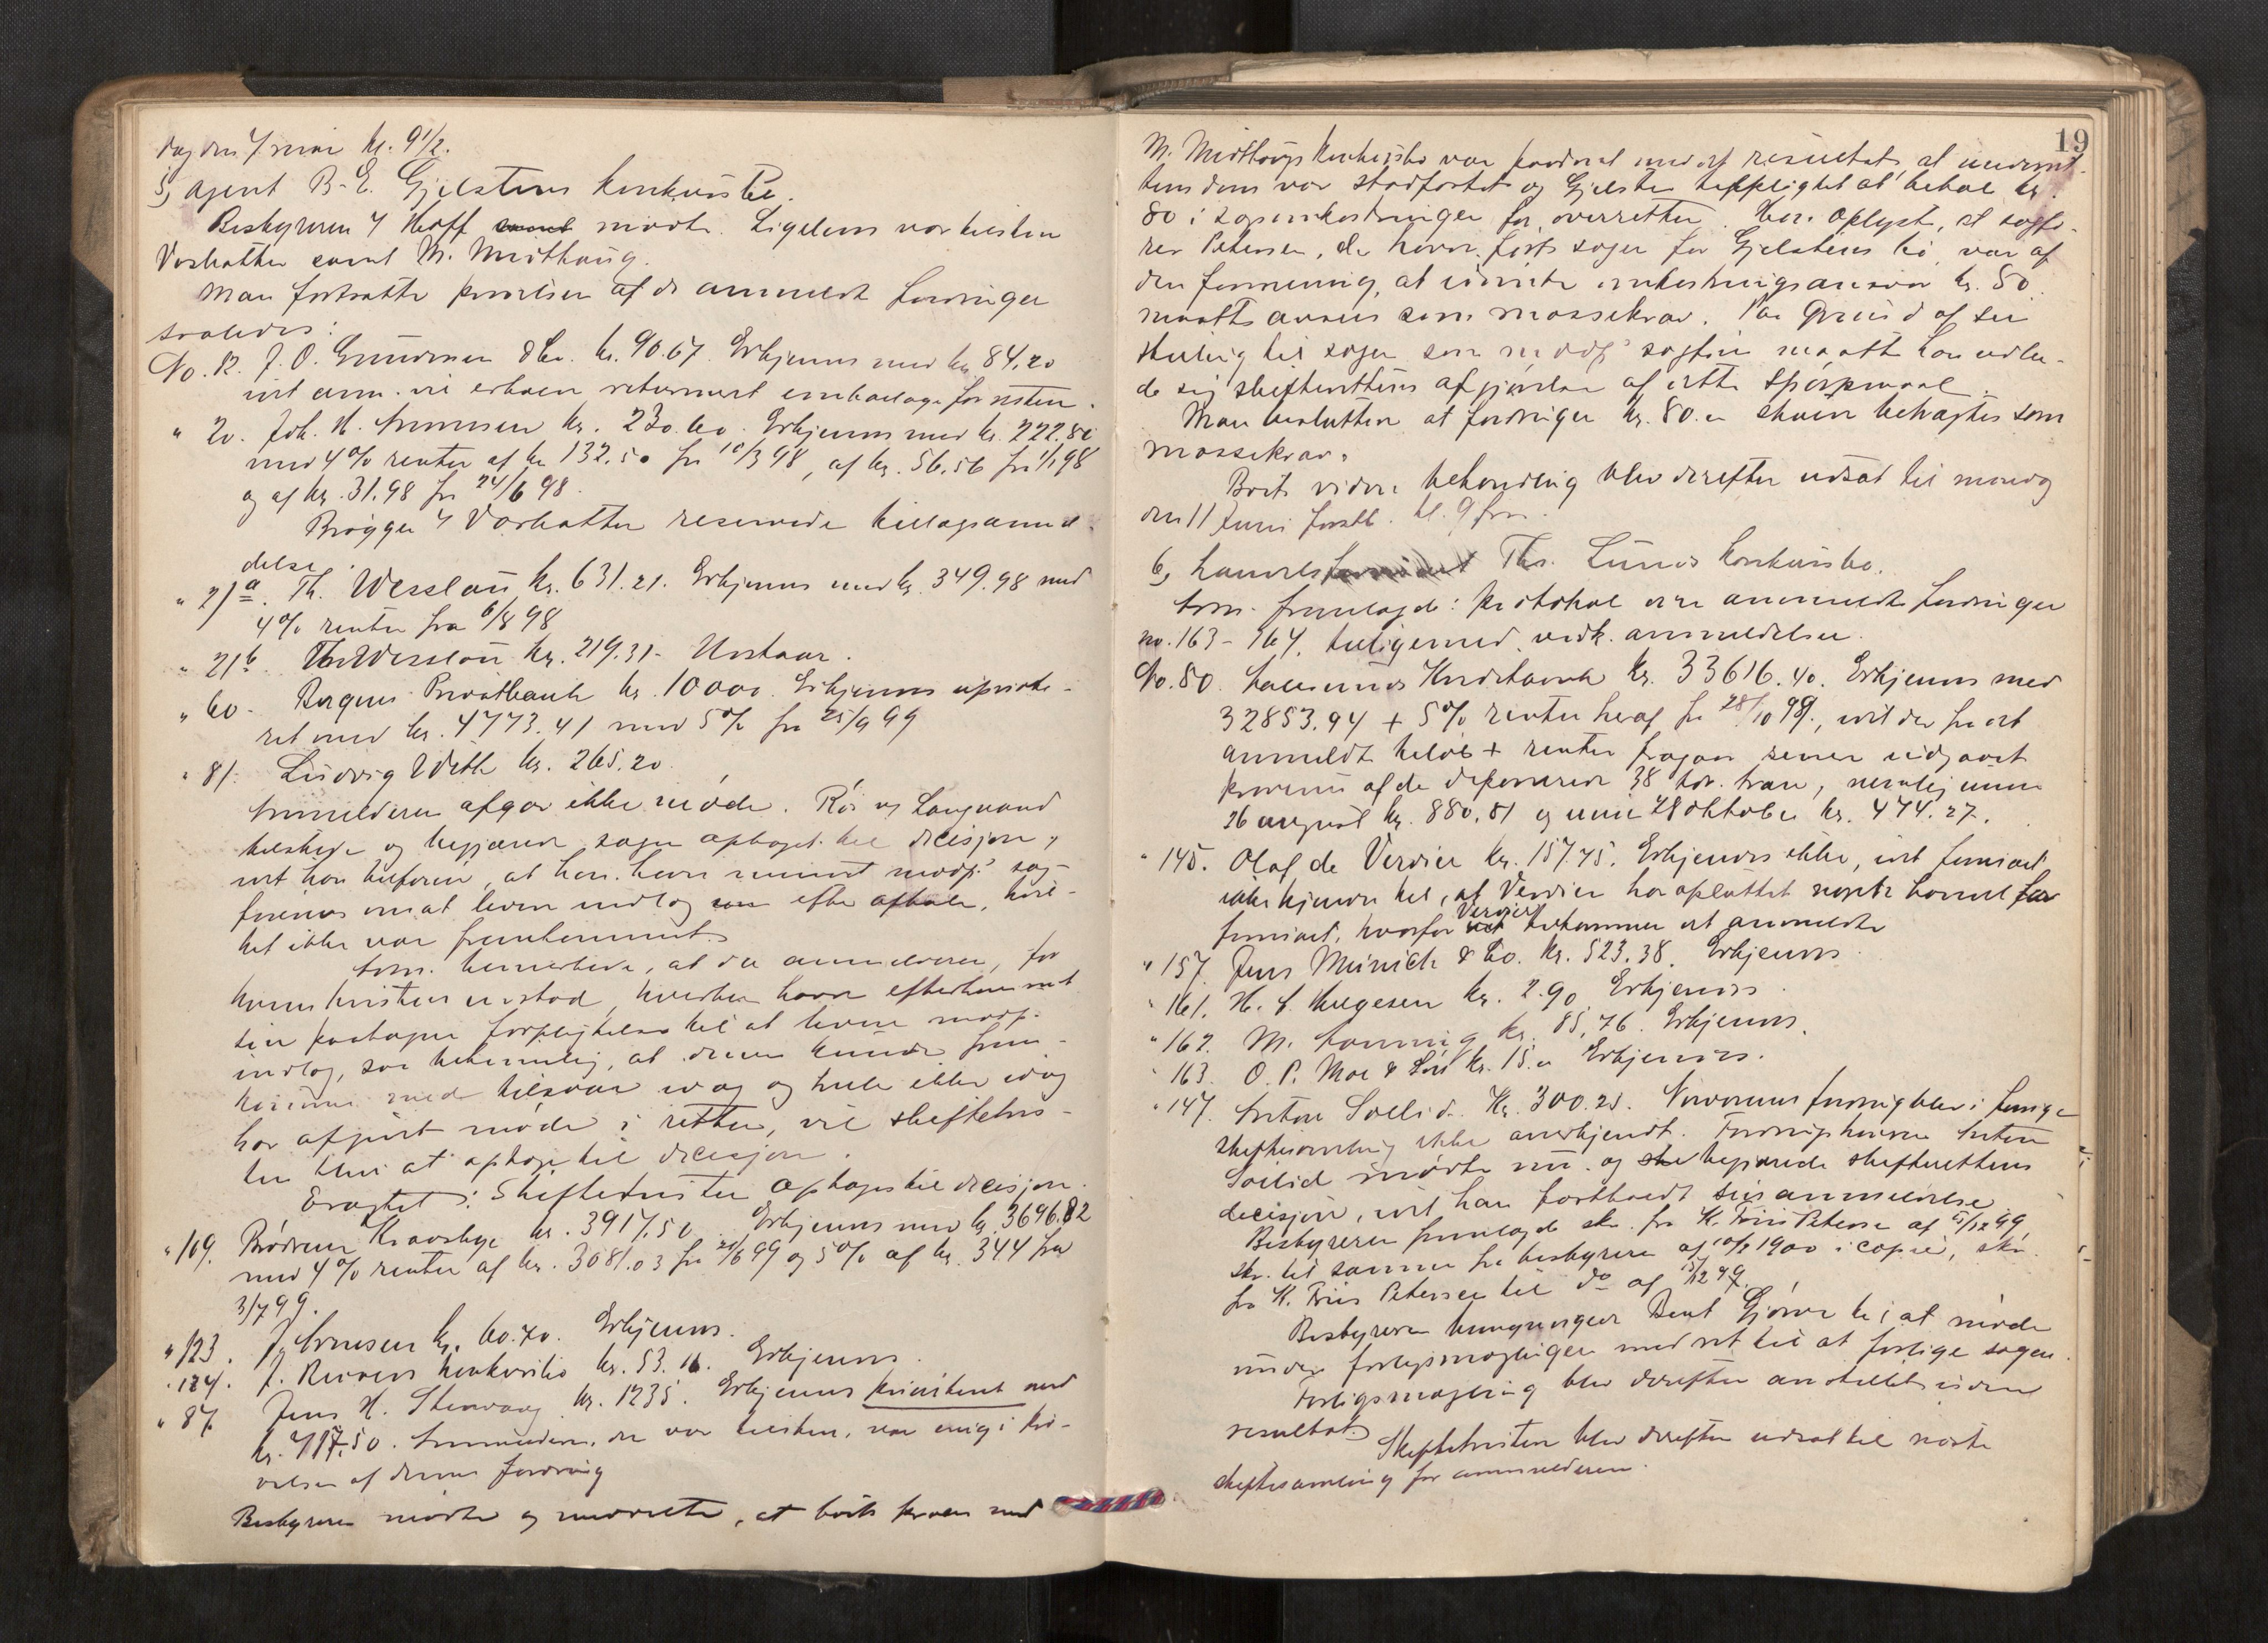 dag den 7 mai kl. 9 1/2.
5, agent B. E. Gjelstens konkursbo.
Bestyreren Hoff mødte. Ligeledes var tilstede
Vashatter samt M. Midthaug.
Man fortsatte prøvelsen af de anmeldte fordringer
saaledes:
No. 12. J. O. Gundersen & Co. kr. 90.67. Erkjennes med kr. 84.20
idet anm. vil erholde returneret emballage for resten.
" 20. Joh. H. kr. 230.60. Erkjennes med kr. 222.80
med 4% renter af kr 132.50 fra 10/3 98, af kr. 56.56 fra 1/1 98
og af kr. 31.98 fra 24/6 98.
Brøgger Vashatter reserverede tillægsanmel-
delse.
" 21a. Th. Wesslau kr. 631.21. Erkjennes med kr. 349.98 med
4% renter fra 6/8 98
" 21b. Th. Wesslau kr. 219.31 - Udstaar.
" 60. Bergens Privatbank kr. 10000. Erkjennes upriorite-
ret med kr. 4773.41 med 5% fra 25/9 99
" 81. Ludvig With kr. 265.20.
Anmelderen afgav ikke møde. Rør og Langaard
tilstede og begjærede sagen optaget til decisjon,
idet han tilføiede, at han havde mindet modp. sag-
førerens om at levere indlæg efter aftale, hvil-
ket ikke var fremkommet.
Adm. bemerkede, at da anmelderen, for
hvem fristen udstod, hverken havde efterkommet
sin paatagne forpligtelse til at levere modp.
indlæg, saa betimelig, at denne kunde frem-
komme med tilsvar idag og heller ikke idag
har afgivet møde i retten, vil skiftetvis-
ten blive at optage til decisjon.
Eragtet: Skiftetvisten optages til decisjon.
" 109. Brødrene Kravskye kr. 3917.50. Erkjennes med kr. 3696.82
med 4% renter af kr. 3081.03 fra 20/6 99 og 5% af kr. 344 fra
3/7 99.
" 123. J. Arnesen kr. 60.70. Erkjennes.
" 124. J. konkursbo kr. 53.16. Erkjennes.
" 87. Jens H. Stenvaag kr. 1235. Erkjennes prioriteret med
kr. 717.50. Anmelderen, der var tilstede, var enig i prø-
velsen af denne fordring
Bestyreren mødte og meddelte, at boets proces med
19
M. Midthaugs konkursbo var paadømt med det resultat, at underret-
tens dom var stadfæstet og Gjelsten tilpligtet at betale kr.
80 i sagsomkostninger for overretten. Han oplyste, at sagfø-
rer Petersen, der havde ført sagen for Gjelstens bo, var af
den formening, at idømte omkostningsansvar kr. 80
maatte ansees som massekrav. Paa grund af sin
stilling til sagen som modp. sagfører maatte han udbe-
de sig skifterettens afgjørelse af dette spørgsmaal.
Man besluttede at fordringen kr. 80.- skulde betragtes som
massekrav.
Boets videre behandling blev derefter udsat til mandag
den 11 Juni førstk. kl. 9 fm.
6, handels Ths. Lunds konkursbo.
Adm. fremlagde: protokol over anmeldte fordringer
no. 163 - 164, tilligemed vedk. anmeldelser.
No. 80. Aalesunds Kreditbank kr. 33616.40. Erkjennes med
32853.94 + 5% renter heraf fra 28/10 99, idet der fra det
anmeldte beløb + renter fragaar senere indgaaet
provenu af de deponerede 38 tdr. tran, nemlig under
26 august kr. 880.81 og under 28 oktober kr. 474.27.
" 145. Olaf de Verdier kr. 157.75. Erkjendes ikke, idet firmaet
ikke kjender til, at Verdier har afsluttet nogen handel for
firmaet, hvorfor Verdier det anmeldte
" 157. Jens Meinich & Co. kr. 523.38. Erkjennes.
" 161. H. S. Helgesen kr. 2.90. Erkjendes.
" 162. M. kr. 85.76. Erkjennes.
" 163. O. P. Moe & Søn kr. 15.- Erkjendes.
" 147. Anton Sollid. Kr. 300.25. Nærværende fordring blev i forrige
skiftesamling ikke anerkjendt. Fordringshaveren Anton
Sollid mødte nu og begjærede skifterettens
decisjon, idet han fastholdt sin anmeldelse
Bestyreren fremlagde skr. fra H. Friis Petersen af 5/12 99,
skr. til samme fra bestyreren af 10/2 1900 i copie, skr.
fra H. Friis Petersen til do af 15/12 99.
Bestyreren bemyndigede Bent Gjørve til at møde
under forligsmæglingen med ret til at forlige sagen.
Forligsmægling blev derefter anstillet uden
resultat.
Skiftetvisten blev derefter udsat til næste
skiftesamling for anmelderen.